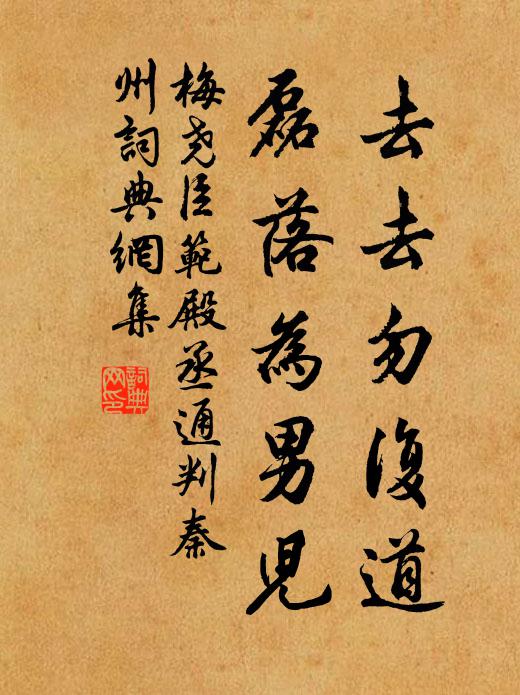 去去勿復道
磊落為男兒
梅堯臣範殿丞通判秦
州詞典網集
詞典
网印